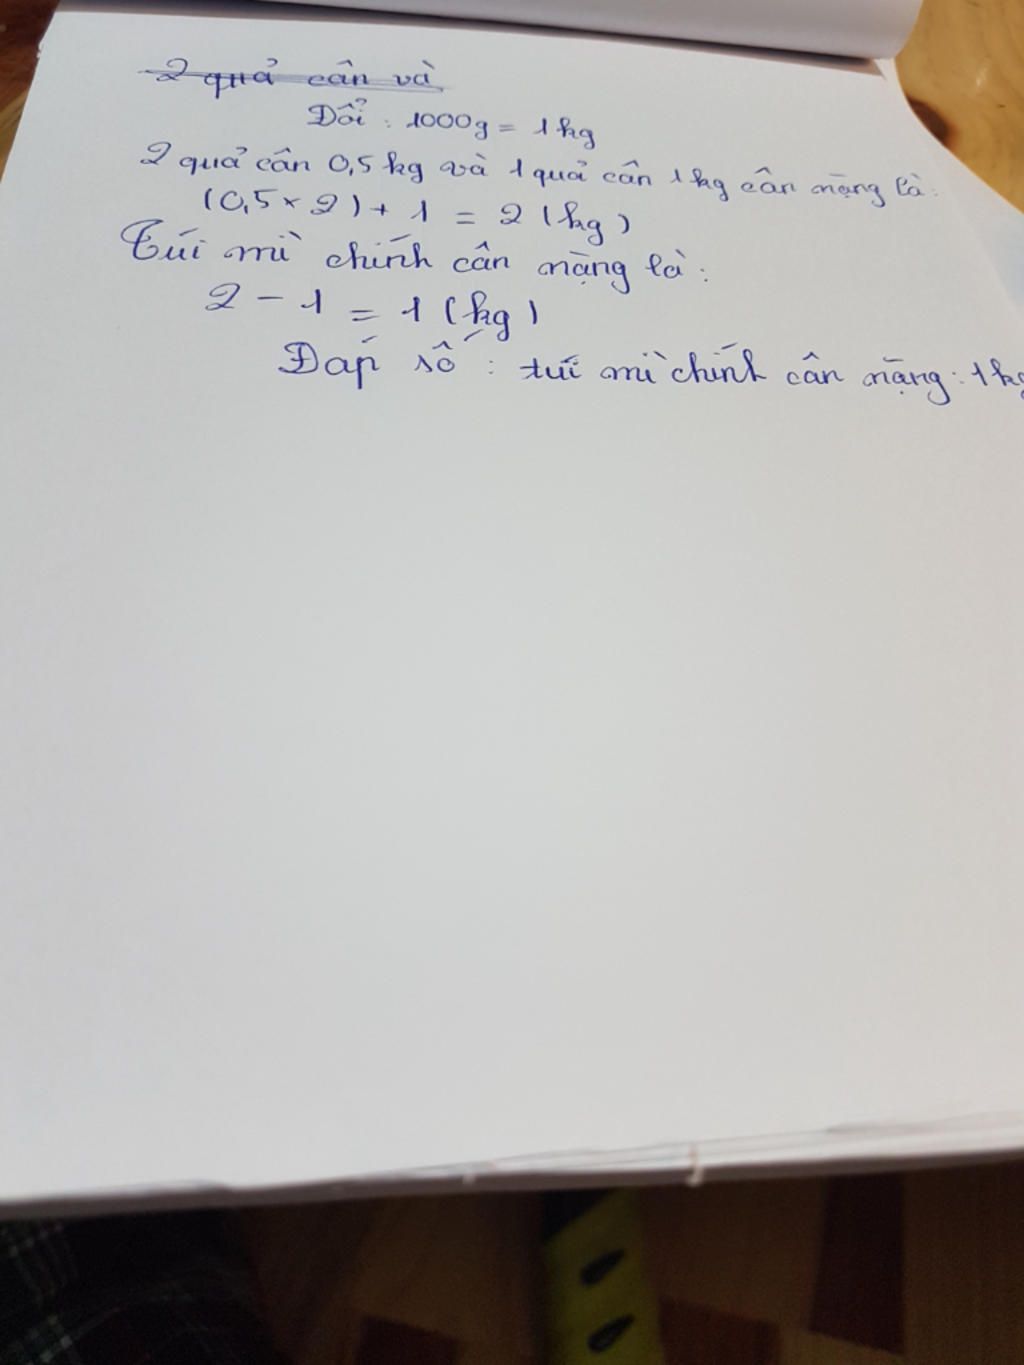 2 quả cân và
Đổi : 1000g = 1 kg
2 quả cân 0,5 kg và 1 quả cân 1 kg cân nặng là:
(0,5 × 2) + 1 = 2 (kg)
Túi mì chính cân nặng là :
2 - 1 = 1 (kg)
Đáp số : túi mì chính cân nặng : 1 kg